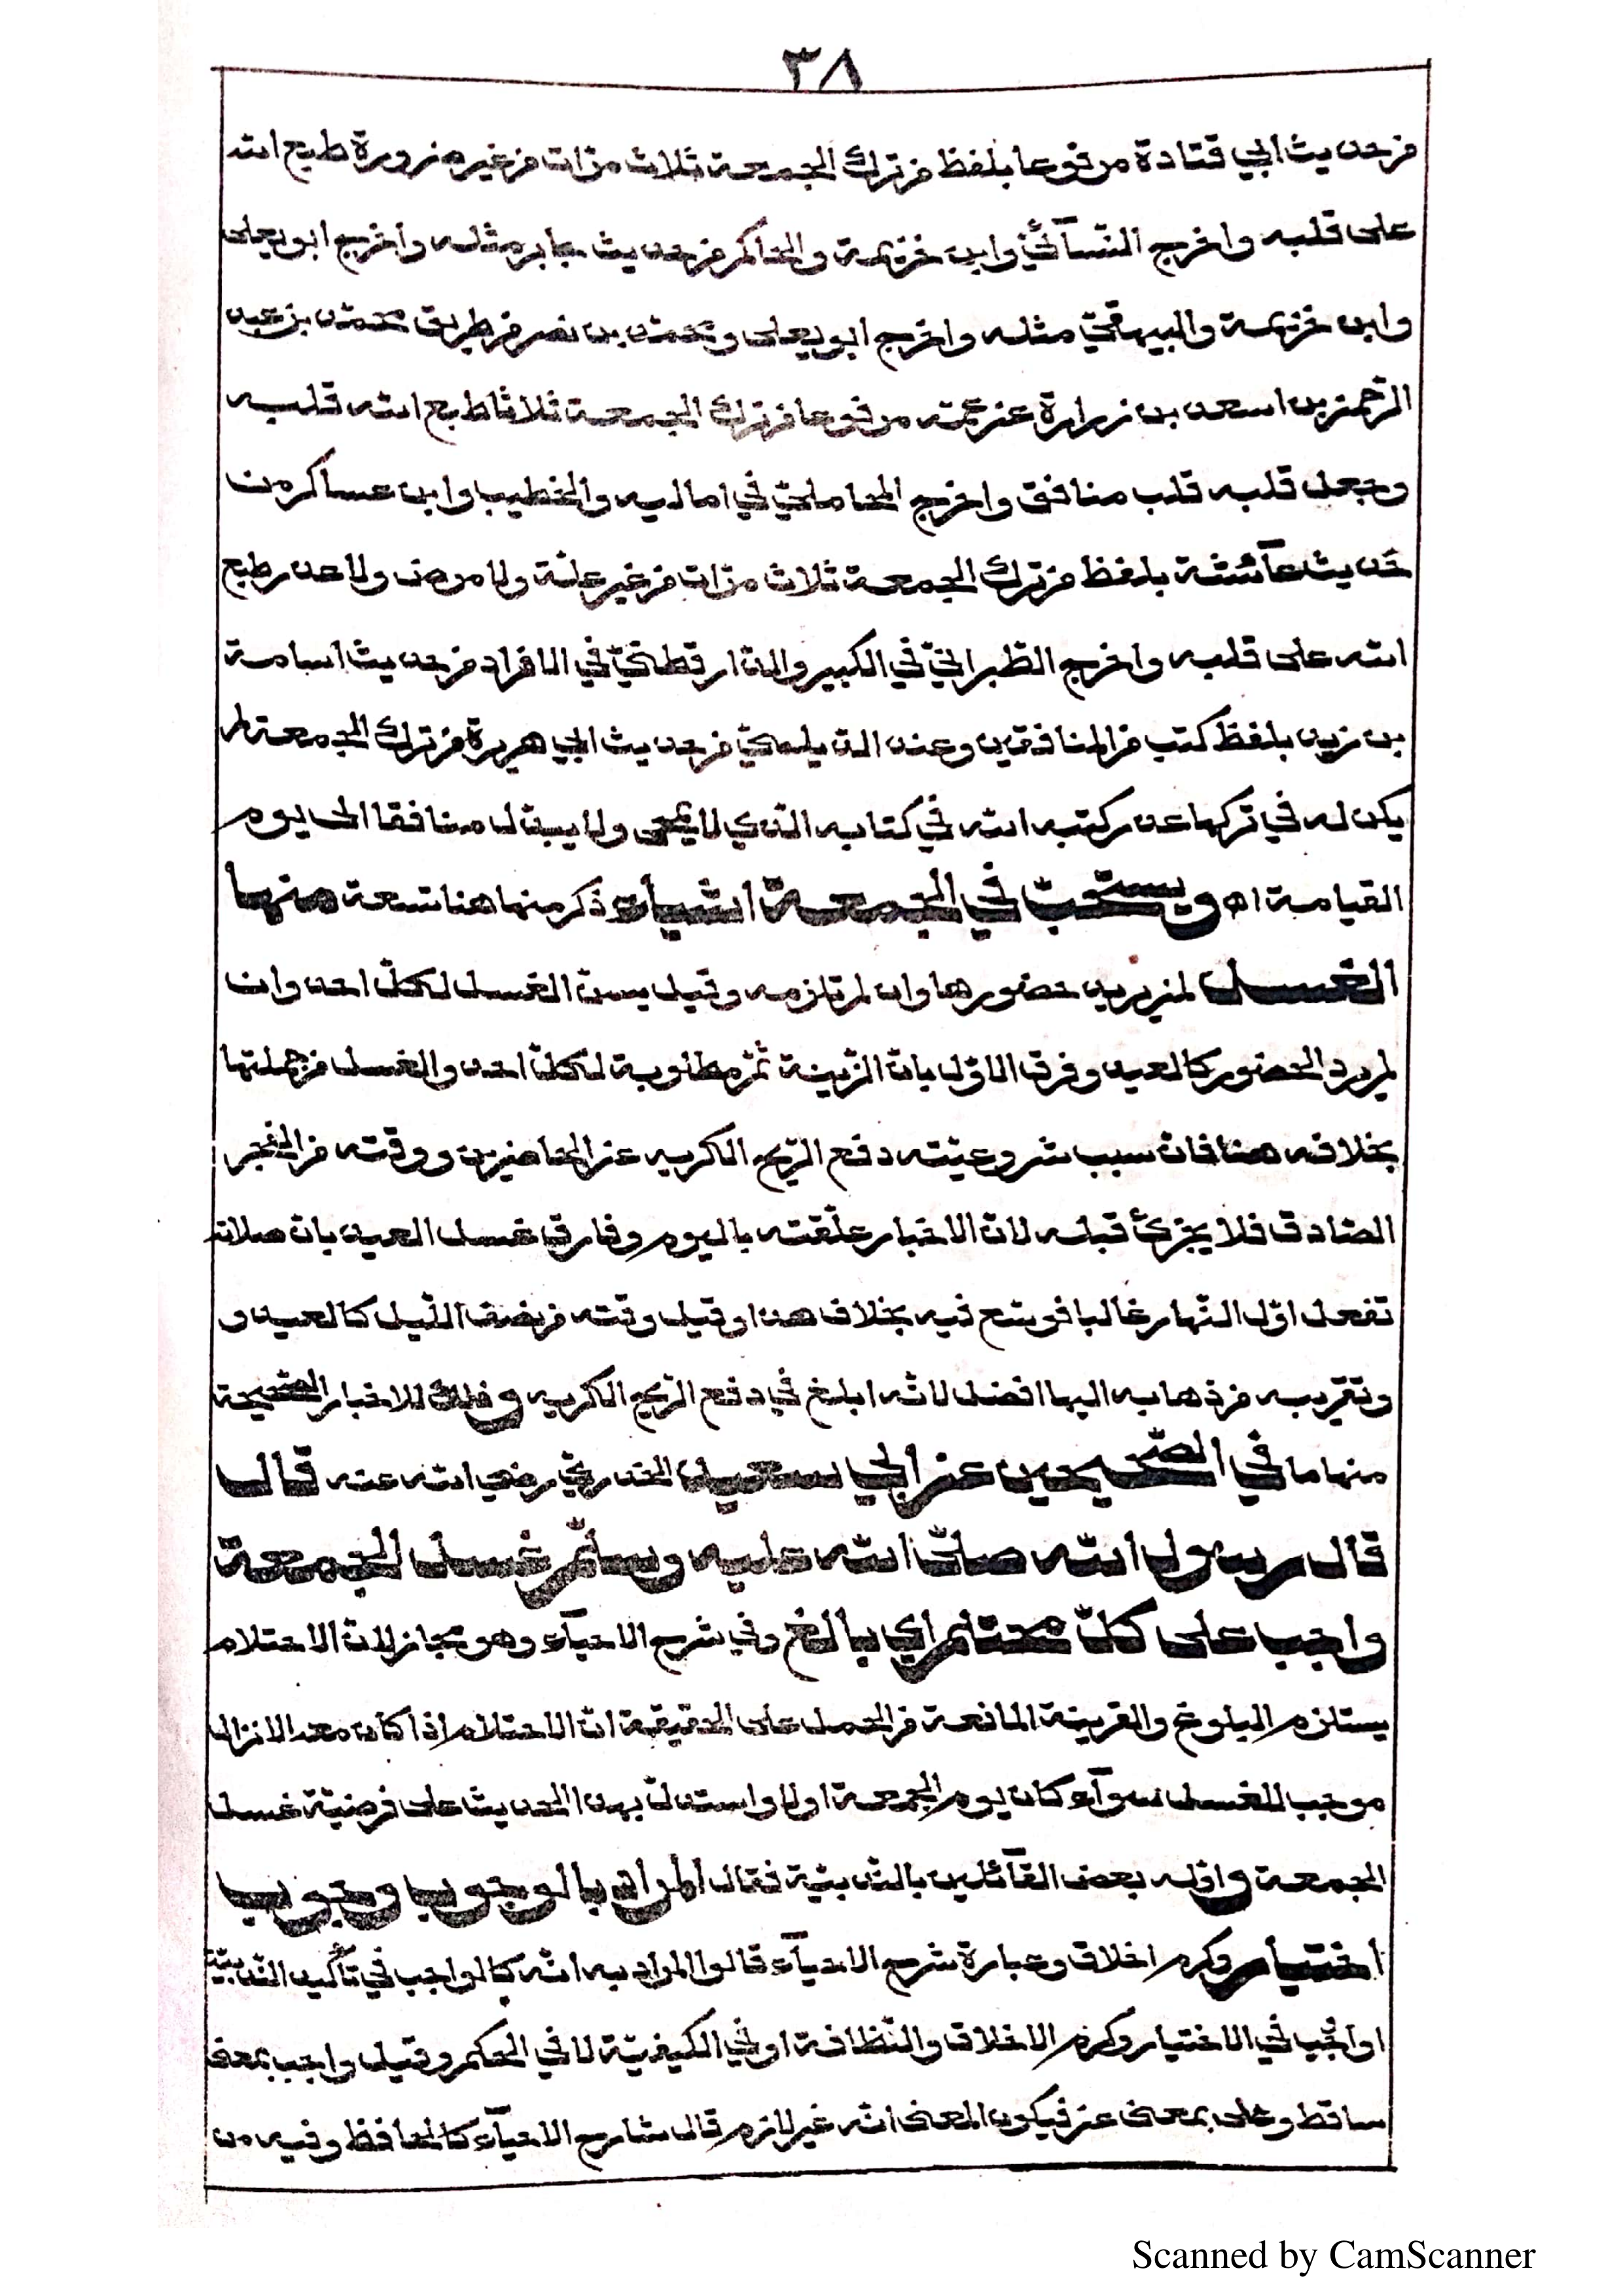 ٣٨
من حديث ابي قتادة مرفوعا بلفظ من ترك الجمعة ثلاث مرّات من غير ضرورة طبع الله
على قلبه واخرج النّسآئيّ وابن خزيمة والحاكم من حديث جابر مثله واخرج ابو يعلى
وابن خزيمة والبيهقيّ مثله واخرج ابو يعلى ومحمّد بن نصر من طريق محمّد بن عبد
الرّحمن بن اسعد بن زرارة عن عمّه مرفوعا من ترك الجمعة ثلاثا طبع الله قلبه
وجعل قلبه قلب منافق واخرج المحامليّ في اماليه والخطيب وابن عساكر من
حديث عآئشة بلفظ من ترك الجمعة ثلاث مرّات من غير علّة ولا مرض ولا عذر طبع
الله على قلبه واخرج الطّبرانيّ في الكبير والدّارقطنيّ في الافراد من حديث اسامة
بن زيد بلفظ كتب من المنافقين وعند الدّيلميّ من حديث ابي هريرة من ترك الجمعة لم
يكن له في تركها عذر كتبه الله في كتابه الّذي لا يمحى ولا يبدّل منافقا الى يوم
القيامة اه ويستحبّ في الجمعة اشيآء ذكر منها هنا تسعة منها
الغسل لمن يريد حضورها وان لم تلزمه وقيل يسنّ الغسل لكلّ احد وان
لم يرد الحضور كالعيد وفرق الاوّل بانّ الزّينة ثمّ مطلوبة لكلّ احد والغسل من جملتها
بخلافه هنا فانّ سبب مشروعيّته دفع الرّيح الكريه عن الحاضرين ووقته من الفجر
الصّادق فلا يجزئ قبله لانّ الاخبار علّقته باليوم وفارق غسل العيد بانّ صلاته
تفعل اوّل النّهار غالبا فوسّع فيه بخلاف هذا وقيل وقته من نصف اللّيل كالعيد و
وتقريبه من ذهابه اليها افضل لانّه ابلغ في دفع الرّيح الكريه وذلك للاخبار الصّحيحة
منها ما في الصّحيحين عن ابي سعيد الخدريّ رضي الله عنه قال
قال رسول الله صلّى الله عليه وسلّم غسل الجمعة
واجب على كلّ محتلم اي بالغ وفي شرح الاحيآء وهو مجاز لانّ الاحتلام
يستلزم البلوغ والقرينة المانعة من الحمل على الحقيقة انّ الاحتلام اذا كان معه الانزال
موجب للغسل سوآء كان يوم الجمعة او لا واستدلّ بهذا الحديث على فرضيّة غسل
الجمعة واوّله بعض القآئلين بالنّدبيّة فقال المراد بالوجوب وجوب
اختيار وكرم اخلاق وعبارة شرح الاحيآء قالوا المراد به انّه كالواجب في تأكيد النّدبيّة
او واجب في الاختيار وكرم الاخلاق والنّظافة او في الكيفيّة لا في الحكم وقيل واجب بمعنى
ساقط وعلى بمعنى عن فيكون المعنى انّه غير لازم قال شارح الاحيآء كالحافظ وفيه من
Scanned by CamScanner